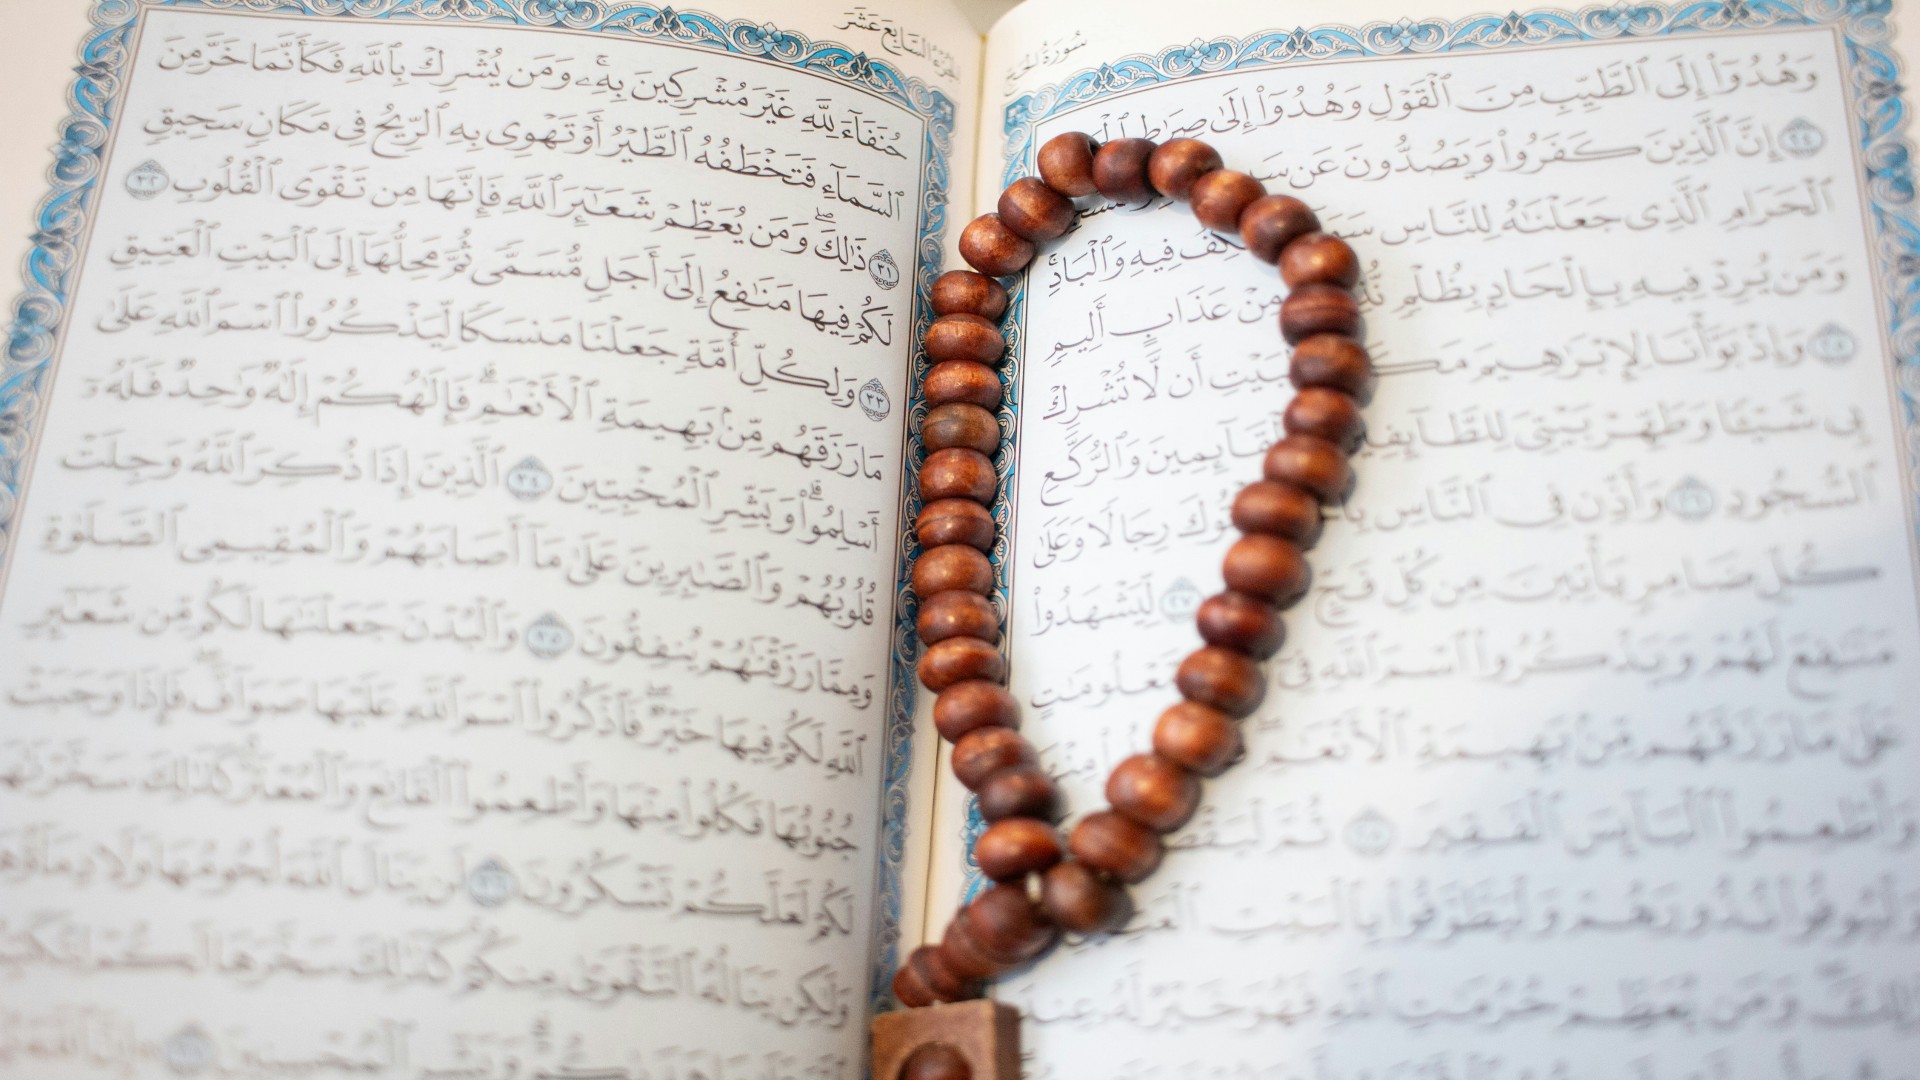 سُورَةُ الحَجِّ
وَهُدُوٓاْ إِلَى ٱلطَّيِّبِ مِنَ ٱلْقَوْلِ وَهُدُوٓاْ إِلَىٰ صِرَٰطِ
٢٤ إِنَّ ٱلَّذِينَ كَفَرُواْ وَيَصُدُّونَ عَن
ٱلْحَرَامِ ٱلَّذِى جَعَلْنَٰهُ لِلنَّاسِ فِيهِ وَٱلْبَادِۚ
وَمَن يُرِدْ فِيهِ بِإِلْحَادِۭ بِظُلْمٍ مِنْ عَذَابٍ أَلِيمٍ
٢٥ وَإِذْ بَوَّأْنَا لِإِبْرَٰهِيمَ أَن لَّا تُشْرِكْ
بِى شَيْـًٔا وَطَهِّرْ بَيْتِىَ لِلطَّآئِفِينَ وَٱلْقَآئِمِينَ وَٱلرُّكَّعِ
ٱلسُّجُودِ ٢٦ وَأَذِّن فِى ٱلنَّاسِ رِجَالًا وَعَلَىٰ
كُلِّ ضَامِرٍ يَأْتِينَ مِن كُلِّ فَجٍّ ٢٧ لِّيَشْهَدُواْ
مَنَٰفِعَ لَهُمْ وَيَذْكُرُواْ ٱسْمَ ٱللَّهِ فِىٓ مَّعْلُومَٰتٍ
عَلَىٰ مَا رَزَقَهُم مِّنۢ بَهِيمَةِ ٱلْأَنْعَٰمِۖ
وَأَطْعِمُواْ ٱلْبَآئِسَ ٱلْفَقِيرَ ٢٨ ثُمَّ
وَلْيُوفُواْ نُذُورَهُمْ وَلْيَطَّوَّفُواْ بِٱلْبَيْتِ
ذَٰلِكَ وَمَن يُعَظِّمْ حُرُمَٰتِ ٱللَّهِ فَهُوَ خَيْرٌ لَّهُۥ عِندَ
الجُزْءُ السَّابِعَ عَشَرَ
حُنَفَآءَ لِلَّهِ غَيْرَ مُشْرِكِينَ بِهِۦۚ وَمَن يُشْرِكْ بِٱللَّهِ فَكَأَنَّمَا خَرَّ مِنَ
ٱلسَّمَآءِ فَتَخْطَفُهُ ٱلطَّيْرُ أَوْ تَهْوِى بِهِ ٱلرِّيحُ فِى مَكَانٍ سَحِيقٍ
٣١ ذَٰلِكَۖ وَمَن يُعَظِّمْ شَعَٰٓئِرَ ٱللَّهِ فَإِنَّهَا مِن تَقْوَى ٱلْقُلُوبِ ٣٢
لَكُمْ فِيهَا مَنَٰفِعُ إِلَىٰٓ أَجَلٍ مُّسَمًّى ثُمَّ مَحِلُّهَآ إِلَى ٱلْبَيْتِ ٱلْعَتِيقِ
٣٣ وَلِكُلِّ أُمَّةٍ جَعَلْنَا مَنسَكًا لِّيَذْكُرُواْ ٱسْمَ ٱللَّهِ عَلَىٰ
مَا رَزَقَهُم مِّنۢ بَهِيمَةِ ٱلْأَنْعَٰمِۗ فَإِلَٰهُكُمْ إِلَٰهٌ وَٰحِدٌ فَلَهُۥٓ
أَسْلِمُواْۗ وَبَشِّرِ ٱلْمُخْبِتِينَ ٣٤ ٱلَّذِينَ إِذَا ذُكِرَ ٱللَّهُ وَجِلَتْ
قُلُوبُهُمْ وَٱلصَّٰبِرِينَ عَلَىٰ مَآ أَصَابَهُمْ وَٱلْمُقِيمِى ٱلصَّلَوٰةِ
وَمِمَّا رَزَقْنَٰهُمْ يُنفِقُونَ ٣٥ وَٱلْبُدْنَ جَعَلْنَٰهَا لَكُم مِّن شَعَٰٓئِرِ
ٱللَّهِ لَكُمْ فِيهَا خَيْرٌۖ فَٱذْكُرُواْ ٱسْمَ ٱللَّهِ عَلَيْهَا صَوَآفَّۖ فَإِذَا وَجَبَتْ
جُنُوبُهَا فَكُلُواْ مِنْهَا وَأَطْعِمُواْ ٱلْقَانِعَ وَٱلْمُعْتَرَّۚ كَذَٰلِكَ سَخَّرْنَٰهَا
لَكُمْ لَعَلَّكُمْ تَشْكُرُونَ ٣٦ لَن يَنَالَ ٱللَّهَ لُحُومُهَا وَلَا دِمَآؤُهَا
وَلَٰكِن يَنَالُهُ ٱلتَّقْوَىٰ مِنكُمْۚ كَذَٰلِكَ سَخَّرَهَا لَكُمْ
وَبَشِّرِ ٱلْمُحْسِنِينَ